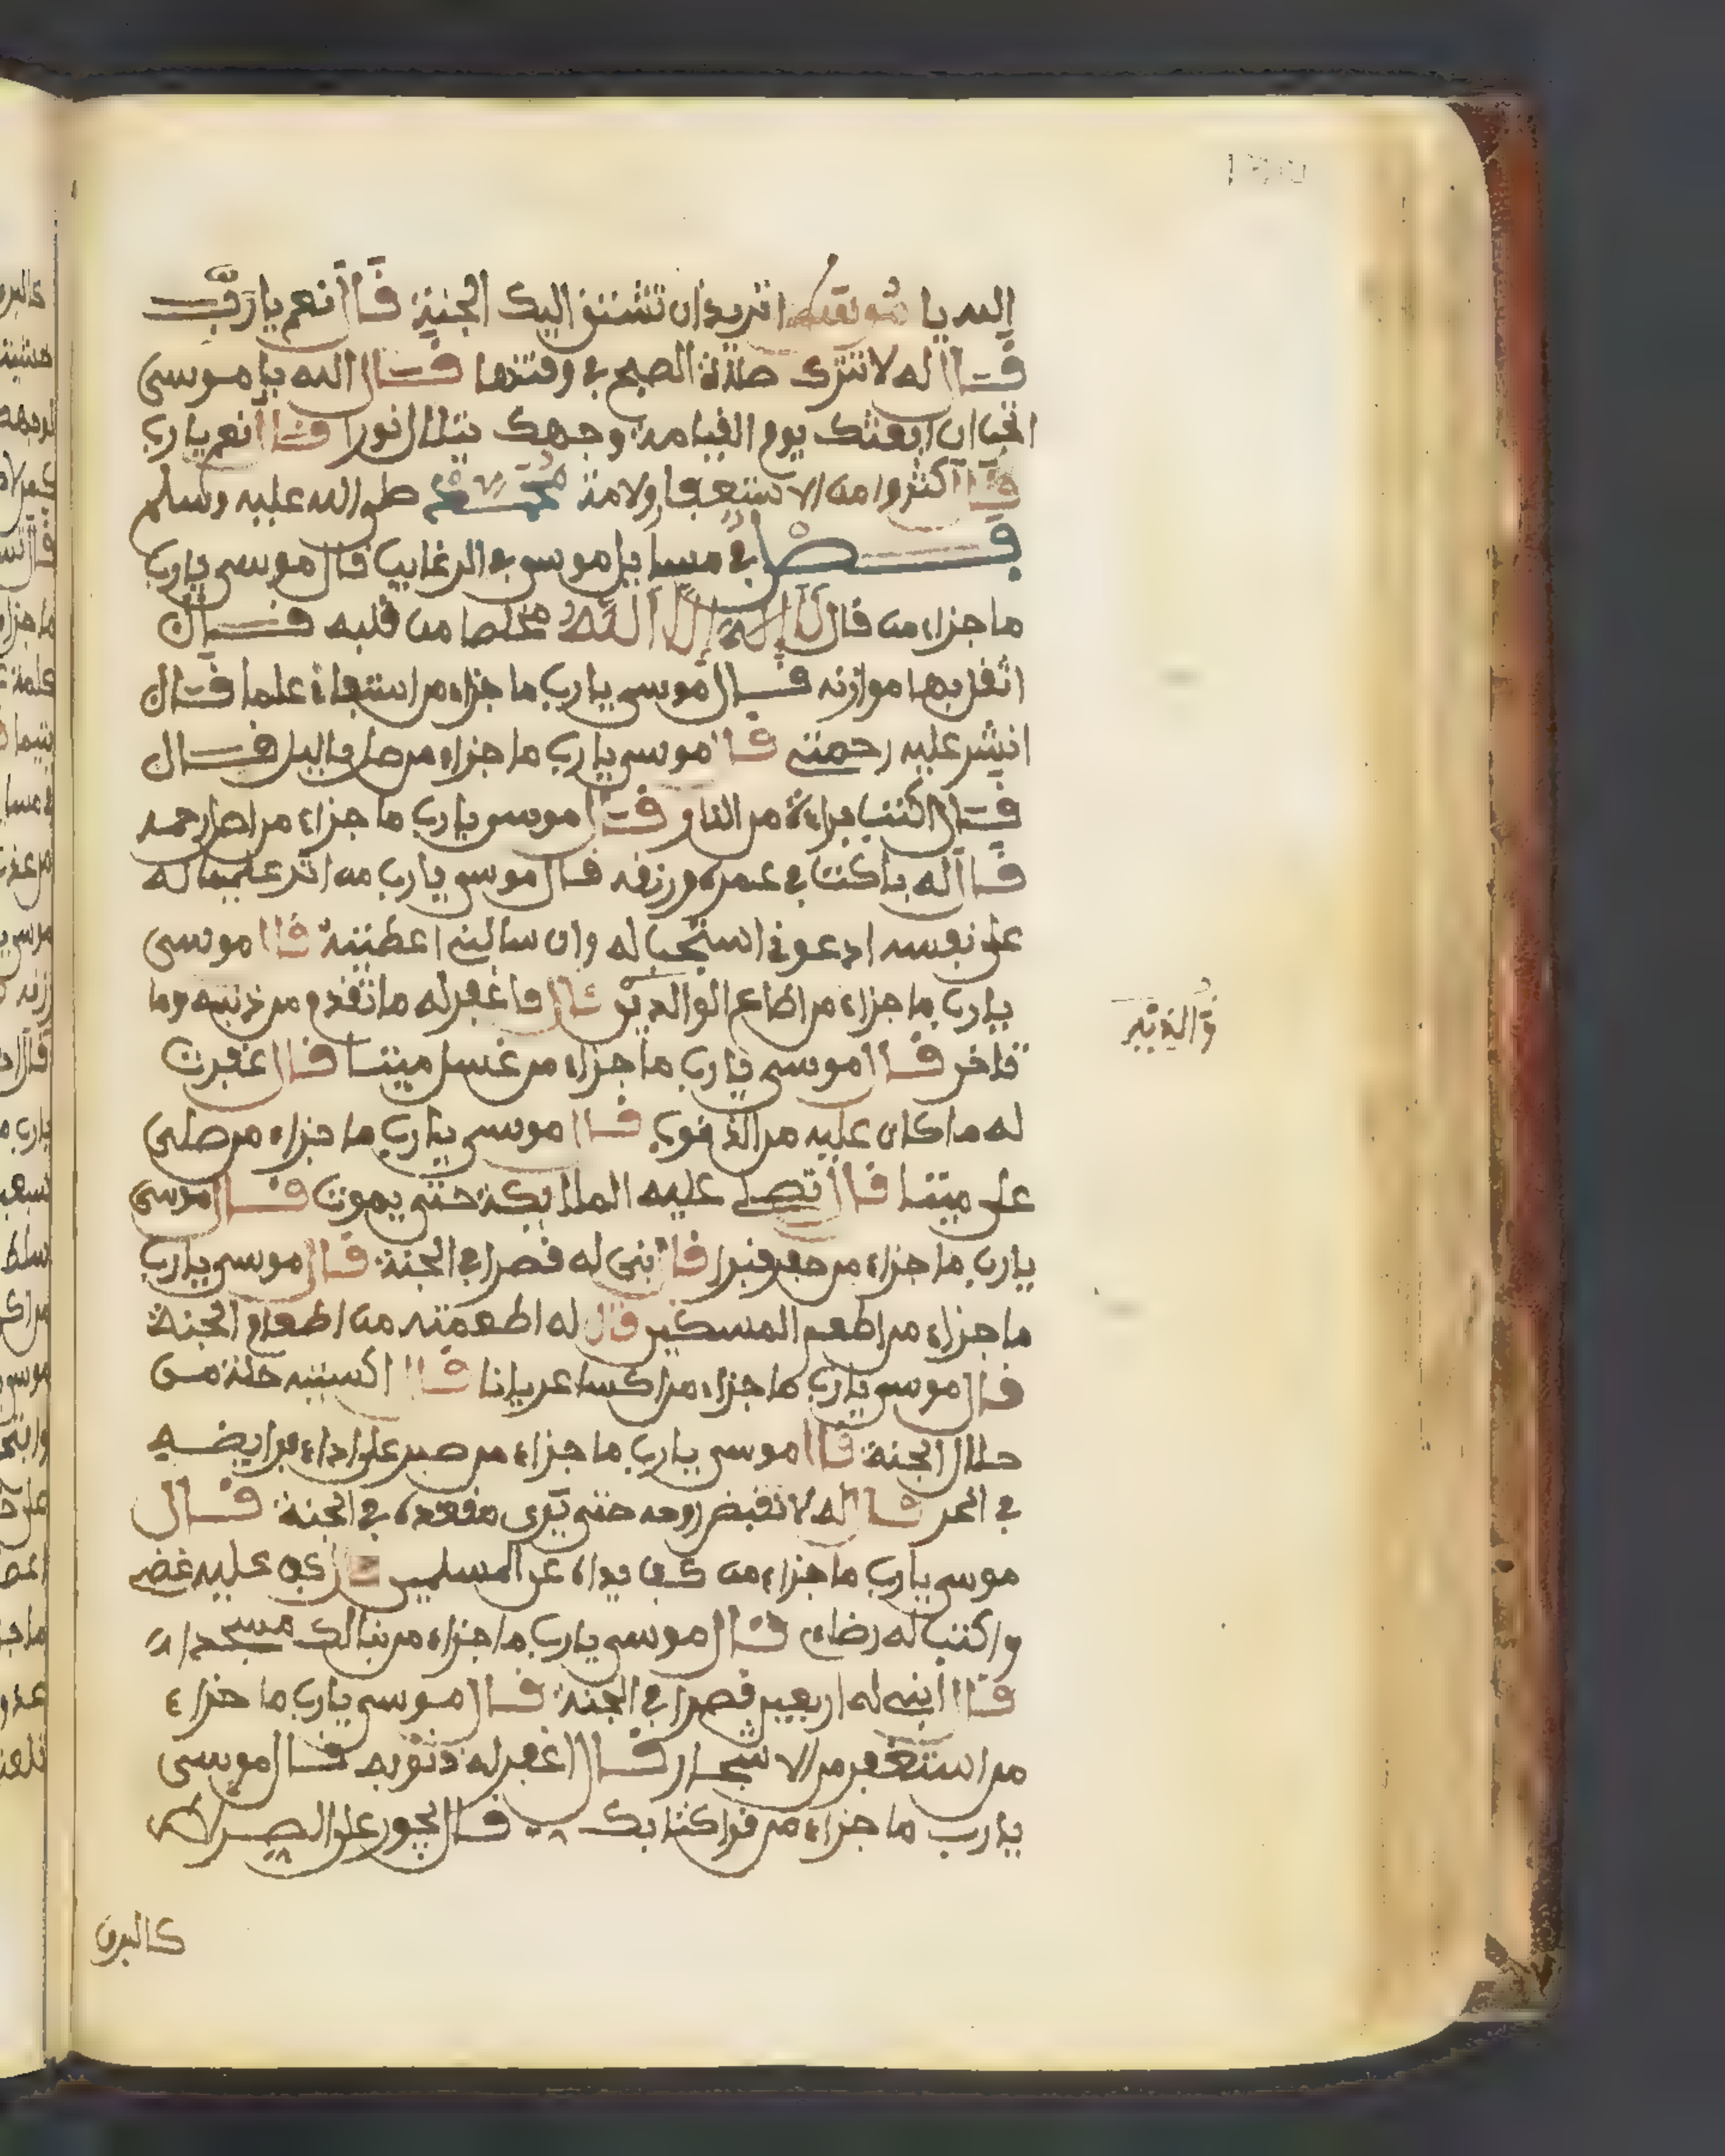 الله يا موسى اتريد ان تشتق اليك الجنة قال نعم يا رب
قال له لا تترك صلاة الصبح في وقتها قال الله يا موسى
اتحب ان ابعثك يوم القيامة وجهك يتلالا نورا قال نعم يا رب
قال اكثروا من الاستغفار ولامة محمد صلى الله عليه وسلم
فصل في مسايل موسى في الرغايب قال موسى يا رب
ما جزاء من قال لا إله إلا الله مخلصا من قلبه قال
اثقل بها موازنه قال موسى يا رب ما جزاء من استفاد علما قال
انشر عليه رحمتي قال موسى يا رب ما جزاء من صلى باليل قال
قال اكتب براءة من النار قال موسى يا رب ما جزاء من اصل رحمه
قال له باركت في عمره ورزقه قال موسى يا رب من اثر عليما له
على نفسه ادعوني استجب له وان سالني اعطيته قال موسى
يا رب ما جزاء من اطاع الوالدين قال فاغفر له ما تقدم من ذنبه وما
تاخر قال موسى يا رب ما جزاء من غسل ميتا قال غفرت
له ما كان عليه من الذنوب قال موسى يا رب ما جزاء من صلى
على ميتا قال تصلي عليه الملايكة حتى يموت قال موسى
يا رب ما جزاء من حفر قبرا قال ابنى له قصرا في الجنة قال موسى يا رب
ما جزاء من اطعم المسكين قال له اطعمته من اطعام الجنة
قال موسى يا رب ما جزاء من اكسا عريانا قال اكسيته حلة من
حلال الجنة قال موسى يا رب ما جزاء من صبر على اداء فرايضه
في الحر قال له لا تقبض روحه حتى يرى مقعده في الجنة قال
موسى يا رب ما جزاء من كف يداه عن المسلمين قال كف عليه غضبي
واكتب له رضاي قال موسى يا رب ما جزاء من بنا لك مسجدا
قال ابني له اربعين قصرا في الجنة قال موسى يا رب ما جزاء
من استغفر من الاسحار قال اغفر له ذنوبه قال موسى
يا رب ما جزاء من قرا كتابك قال يجور على الصراط
كالبرق